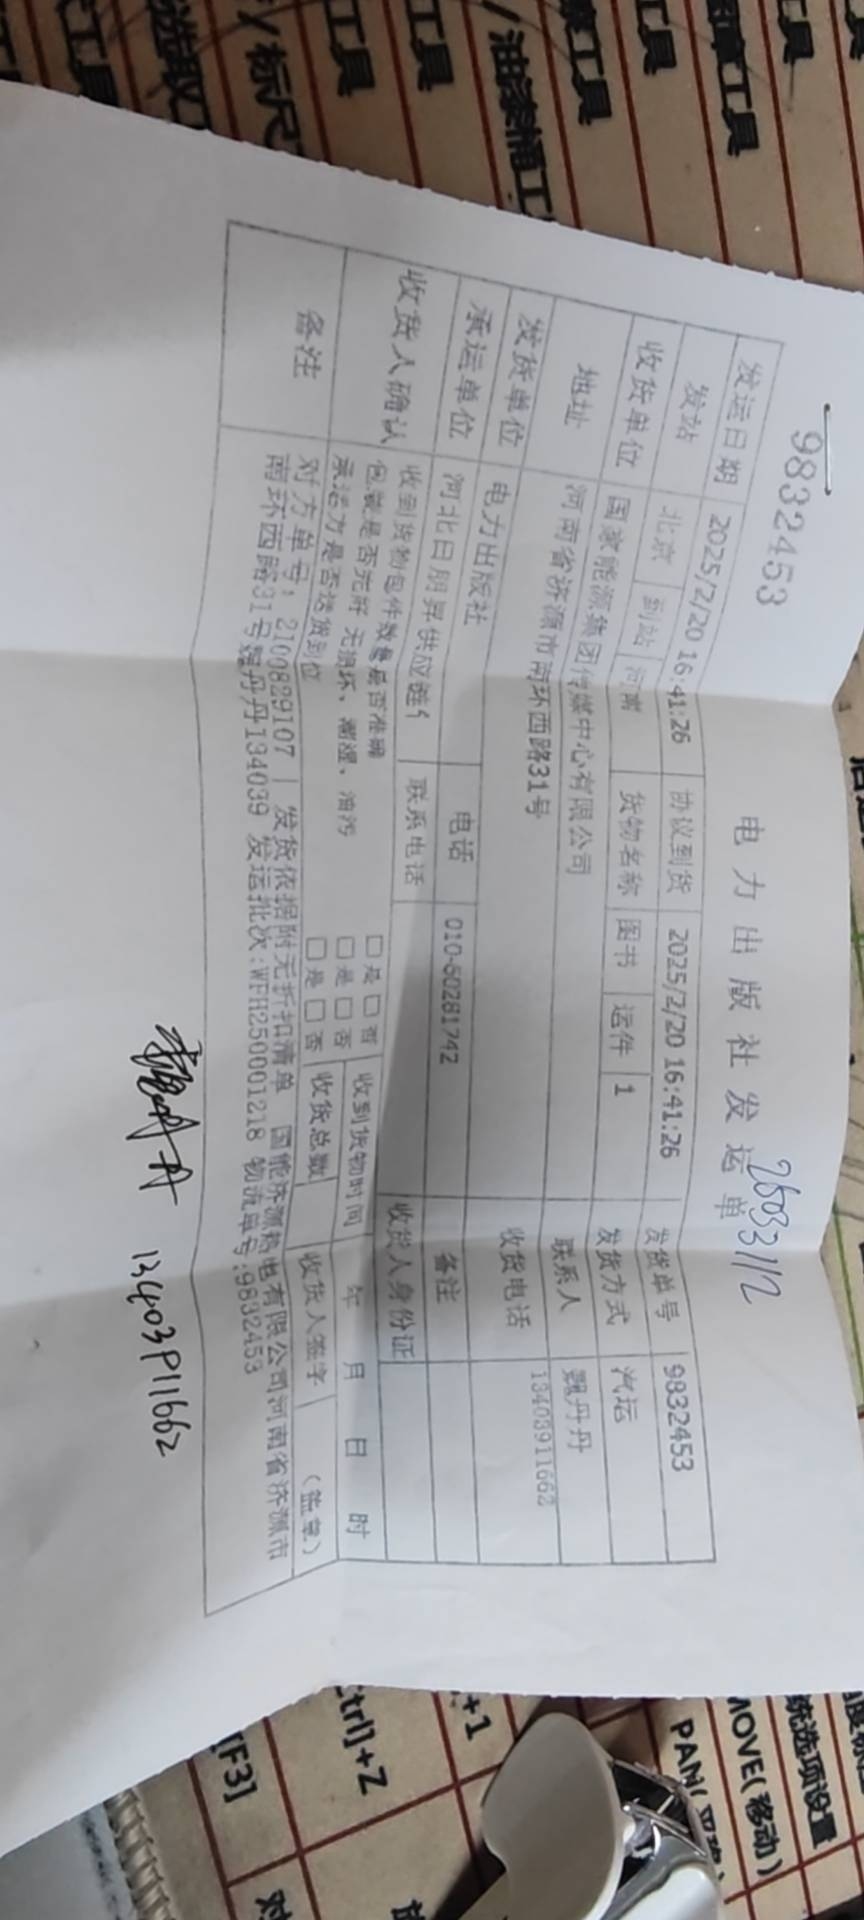 9832453
电力出版社发运单
26033112
发运日期 2025/2/20 16:41:26 协议到货 2025/2/20 16:41:26 发货单号 9832453
发站 北京 到站 河南 货物名称 图书 运件 1 发货方式 汽运
收货单位 国家能源集团传媒中心有限公司 联系人 甄丹丹
地址 河南省济源市南环西路31号 收货电话 13403911662
发货单位 电力出版社 电话 010-60281742 备注
承运单位 河北日朋昇供应链 联系电话 收货人身份证
收货人确认 收到货物包件数量是否准确 □是 □否 收到货物时间 年 月 日 时
包装是否完好 无损坏、潮湿、油污 □是 □否
承运方是否送货到位 □是 □否 收货总数 收货人签字 (盖章)
备注 对方单号:2100829107 | 发货依据附无折扣清单 国能济源热电有限公司河南省济源市
南环西路31号甄丹丹134039 发运批次:WFH250001218 物流单号:9832453
13403911662
选取工具
/标尺
工具
工具
/油漆桶工具
工具
工具
工具
工具
[F3]
Ctrl]+Z
+1
PAN(
MOVE(移动)
统选项设置
对